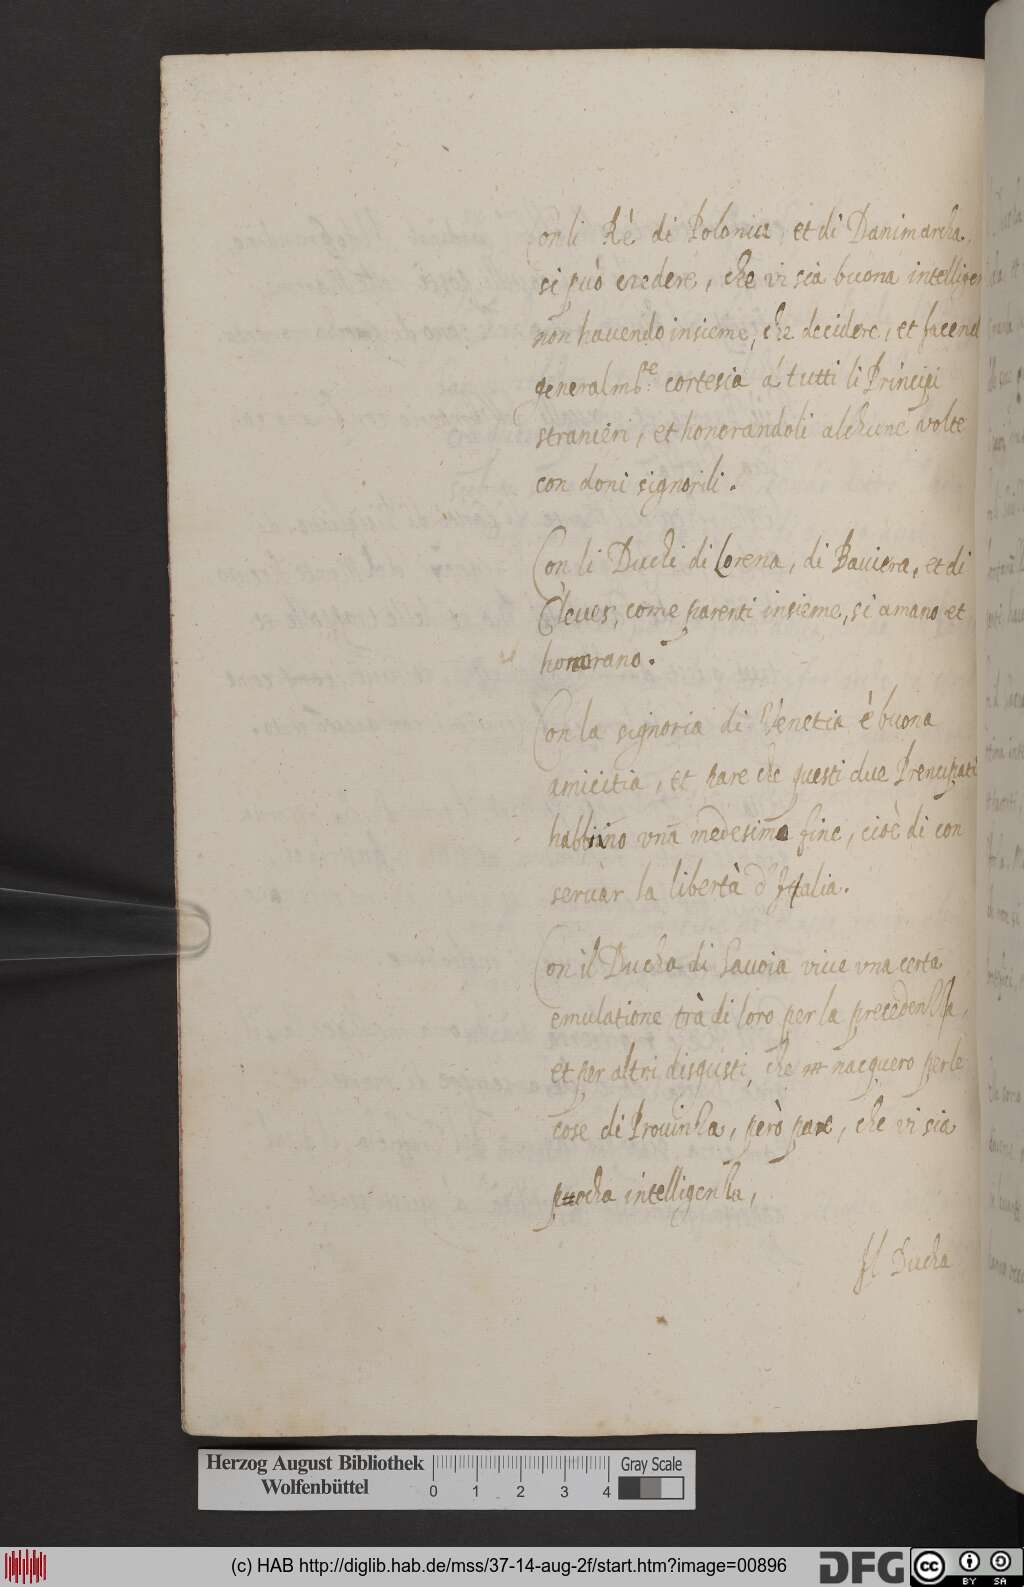 Con li Rè di Polonia, et di Danimarcha,
si può credere, che vi sia buona intelligen
non hauendo insieme, che decidere, et facend
generalm.te cortesia à tutti li Principi
stranieri, et honorandoli alchune volte
con doni signorili.
Con li Duchi di Lorena, di Bauiera, et di
Cleues, come parenti insieme, si amano et
honorano.
Con la signoria di Venetia è buona
amicitia, et pare che questi due Prencipati
habbino vna medesima fine, cioè di con
seruar la libertà d'Ittalia.
Con il Ducha di Sauoia viue vna certa
emulatione trà di loro per la precedenza,
et per altri disgusti, che nacquero per le
cose di Prouinza, però pare, che vi sia
puocha intelligenza,
Il Ducha
Herzog August Bibliothek
Wolfenbüttel
0 1 2 3 4
Gray Scale
(c) HAB http://diglib.hab.de/mss/37-14-aug-2f/start.htm?image=00896
DFG
cc BY SA